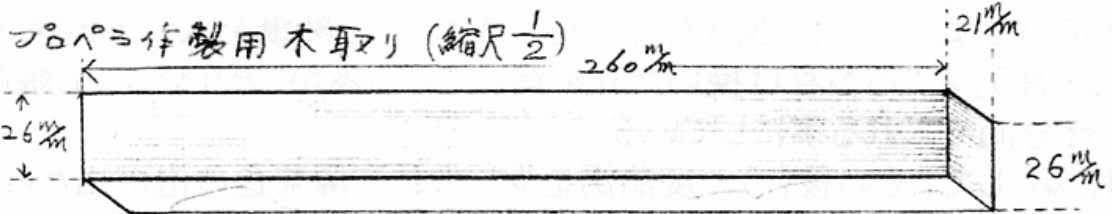 プロペラ作製用木取リ (縮尺 1/2)
21m/m
260m/m
26m/m
26m/m